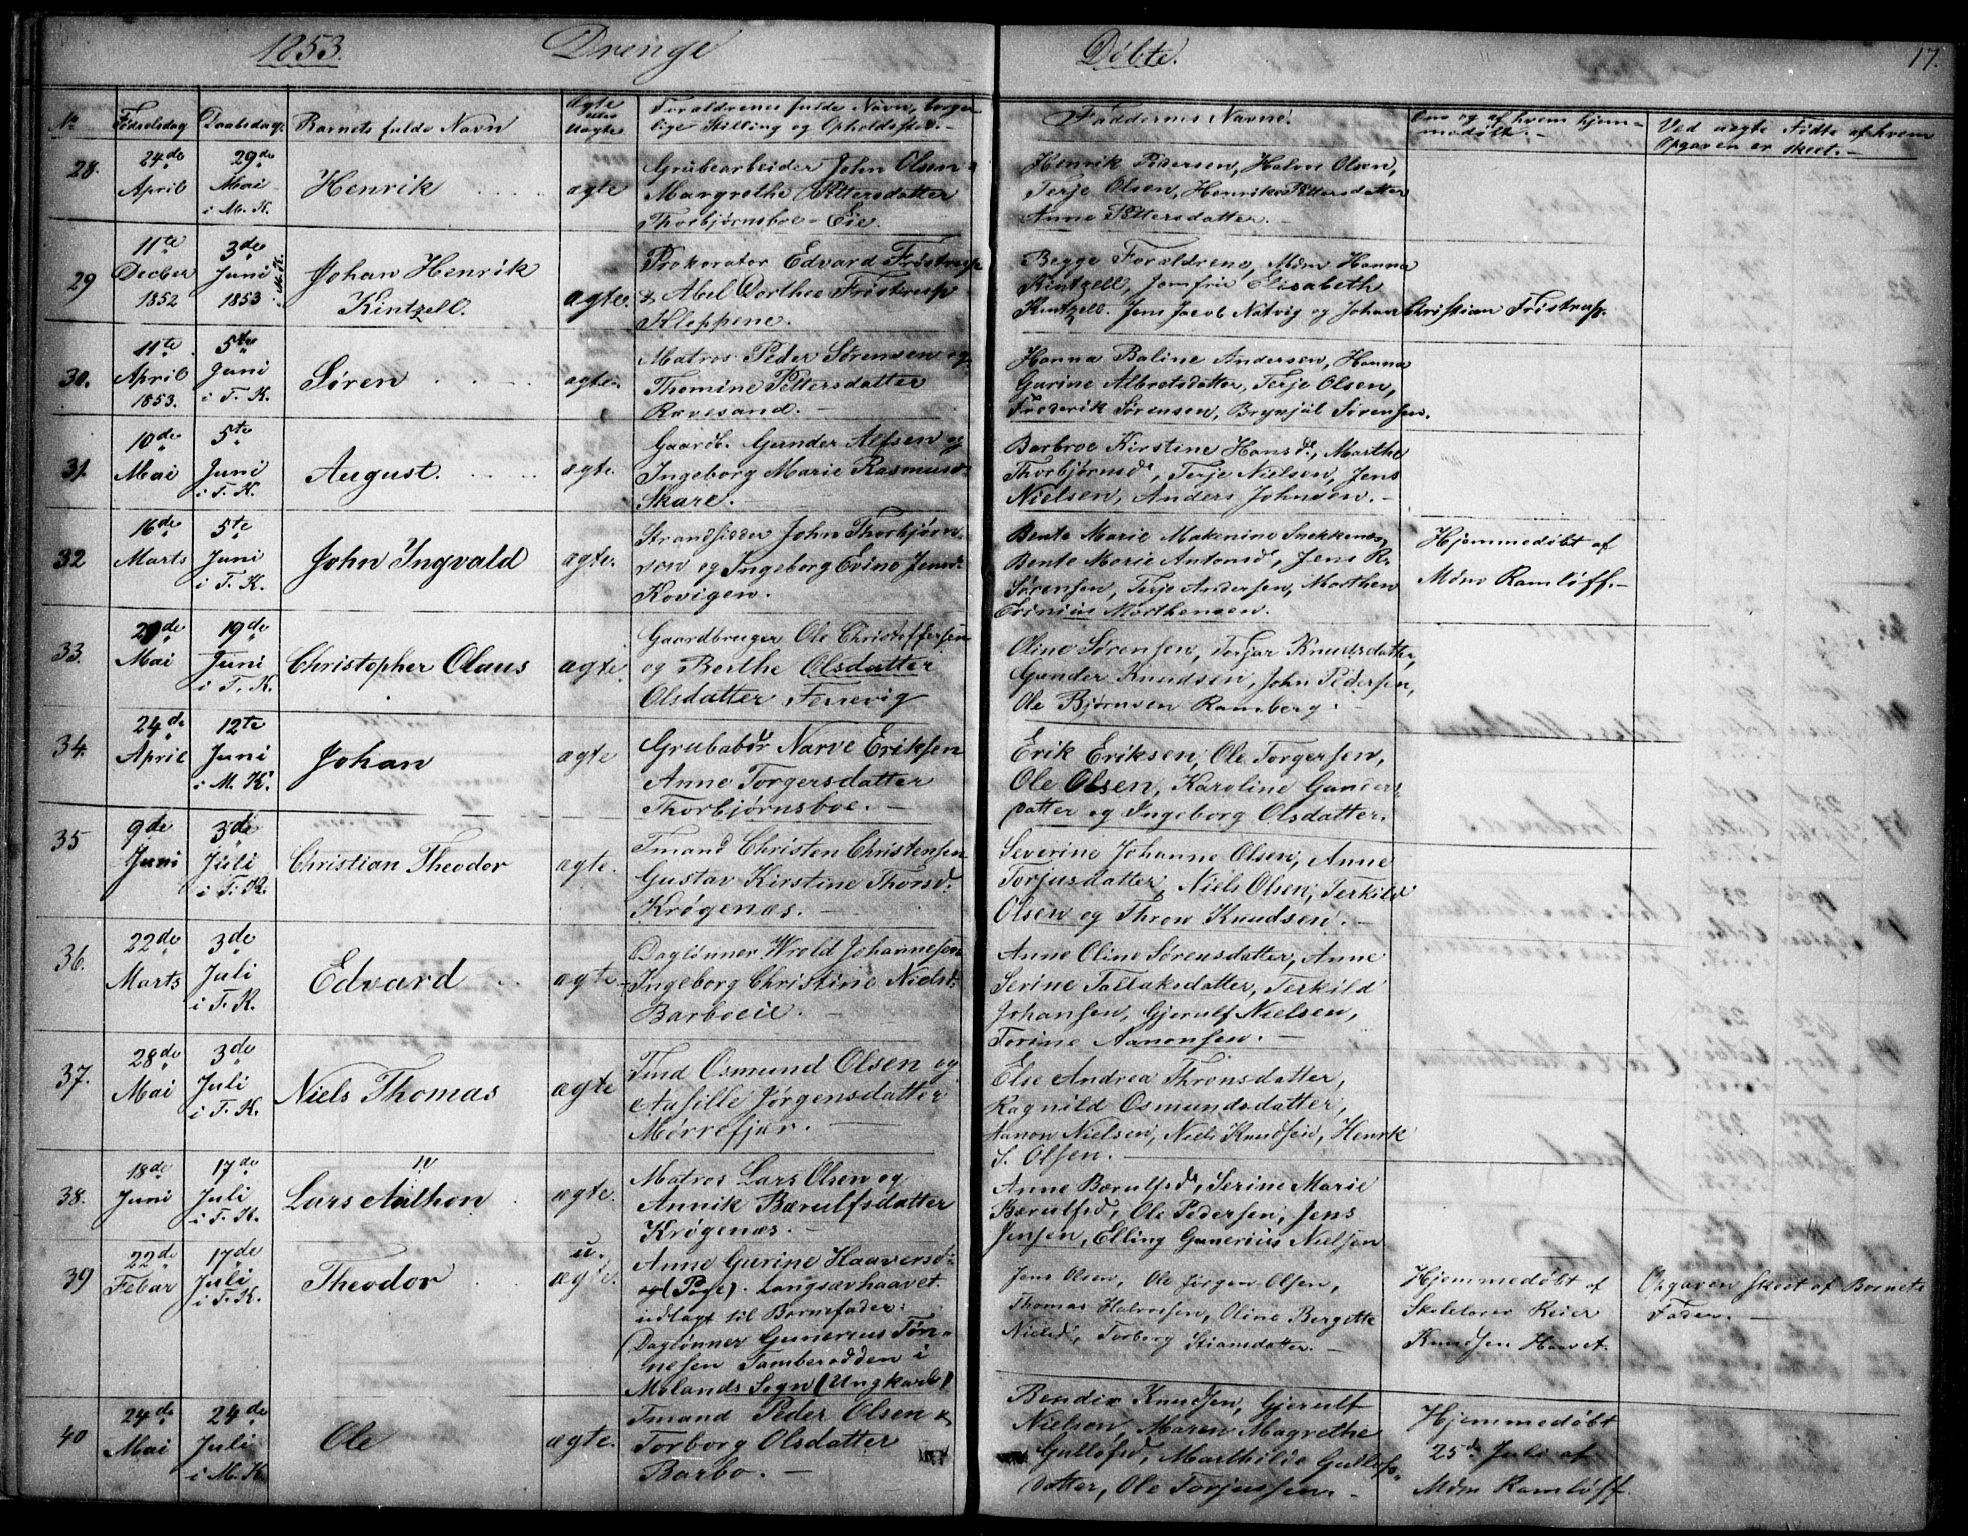 1853. Drenge Døbte. 17.
No Fødselsdag Daabsdag. Barnets fulde Navn ægte eller uægte Forældrenes fulde Navn, borger-
lige Stilling og Opholdssted.- Faddernes Navne. Om og af hvem hjem-
medøbt.- Ved uægte Fødte af hvem
Opgaven er skeet.-
28. 24de April 29de Mai i M. K. Henrik ægte
Grubearbeider John Olsen
Margrethe Pettersdatter
Thorbjørnsboe-Eie.
Henrik Pedersen, Halvo Olsen,
Terje Olsen, Henrikke Pettersdatter
Anne Pettersdatter.-
29 11te Decber 1852 3de Juni 1853 i M. K. Johan Henrik
Kintzell. ægte.
Prokorator Edvard Fristrup
& Abel Dorthee Fristrup
Kleppene.
Begge Forældrene, Mdm Hanna
Kintzell, Jomfrue Elisabeth
Kintzell. Jens Jacob Natvig og Johan Christian Fristrup.
30. 11te April 1853. 5te Juni i T. K. Søren ægte.
Matros Peder Sørensen og
Thomine Pettersdatter
Rævesand.-
Hanna Baline Andersen, Hanna
Gurine Albretsdatter, Terje Olsen,
Frederik Sørensen, Brynjül Sørensen.
31. 10de Mai 5te Juni i T. K. August. ægte.
Gaardb. Gunder Alfsen og
Ingeborg Marie Rasmusd.
Skare.-
Barbroe Kirstine Hansd., Marthe
Thorbjørnsd., Terje Nielsen, Jens
Nielsen, Anders Johnsen.-
32 16de Marts 5te Juni i T. K. John Ingvald ægte.
Strandsidder John Thorbjørn-
sen og Ingeborg Evine Jensd.
Kovigen.
Bente Marie Makenine Snekkenæs,
Bente Marie Antonsd., Jens R.
Sørensen, Terje Andersen, Morthen
Erinius Morthensen.
Hjemmedøbt af
Mdm Ramløff.-
33. 29de Mai 19de Juni i T. K. Christopher Olaus ægte.
Gaardbruger Ole Christoffersen
og Berthe Olsdatter
Olsdatter Fenevig
Oline Sørensen, Torjer Knudsdatter,
Gunder Knudsen, John Pedersen,
Ole Bjørnsen Ramberg.
34. 24de April 12te Juni i M. K. Johan ægte
Grubabdr Narve Eriksen
Anne Torgersdatter
Thorbjørnsboe.-
Erik Eriksen, Ole Torgersen,
Ole Olsen, Karoline Gunders-
datter og Ingeborg Olsdatter.
35 9de Juni 3de Juli i T. K. Christian Theodor ægte.
Tmand Christen Christensen
Gustav Kirstine Thorsd.
Krøgenæs.-
Severine Johanne Olsen, Anne
Torjusdatter, Niels Olsen, Terkild
Olsen og Thron Knudsen.-
36. 22de Marts 3de Juli i T. K. Edvard ægte.
Daglønner Wrold Johannesen
Ingeborg Christine Nielsd.
Barboeie.-
Anne Oline Sørensdatter, Anne
Serine Tallaksdatter, Terkild
Johansen, Gjerulf Nielsen,
Torine Aanonsen.-
37. 28de Mai 3de Juli i T. K. Niels Thomas ægte
Tmd Osmund Olsen og
Aasille Jørgensdatter
Mørrefjær.-
Else Andrea Thronsdatter,
Ragnild Osmundsdatter,
Aanon Nielsen, Niels Knudsen, Henrik
S. Olsen.-
38. 18de Juni 17de Juli i T. K. Lars Aalhon ægte.
Matros Lars Olsen og
Annik Bærulfsdatter
Krøgenæs.-
Anne Bærulfsd, Serine Marie
Bærulfsd, Ole Pedersen, Jens
Jensen, Elling Gunerius Nielsen
39 22de Febar 17de Juli i T. K. Theodor u. ægte.
Anne Gurine Haaversd.
og (Pige). Langsævhaavet
udlagt til Barnefader:
(Daglønner Gunerius Tøn-
nesen Tamberodden i
Molands Sogn (Ungkarl)
Jens Olsen, Ole Jørgen Olsen,
Thomas Halvorsen, Oline Bergette
Nielsd, Torborg Stiansdatter.-
Hjemmedøbt af
Skolelærer Reier
Knudsen Hauet.
Opgaven skeet af Barnets
Fader.-
40 24de Mai 24de Juli i M. K. Ole ægte.
Tmand Peder Olsen &
Torborg Olsdatter
Barbo.-
Bendix Knudsen, Gjerulf
Nielsen, Maren Magrethe
Gullofsd, Marthilde Gullofs-
datter, Ole Torjussen.-
Hjemmedøbt
25de Juli af
Mdm Ramløff